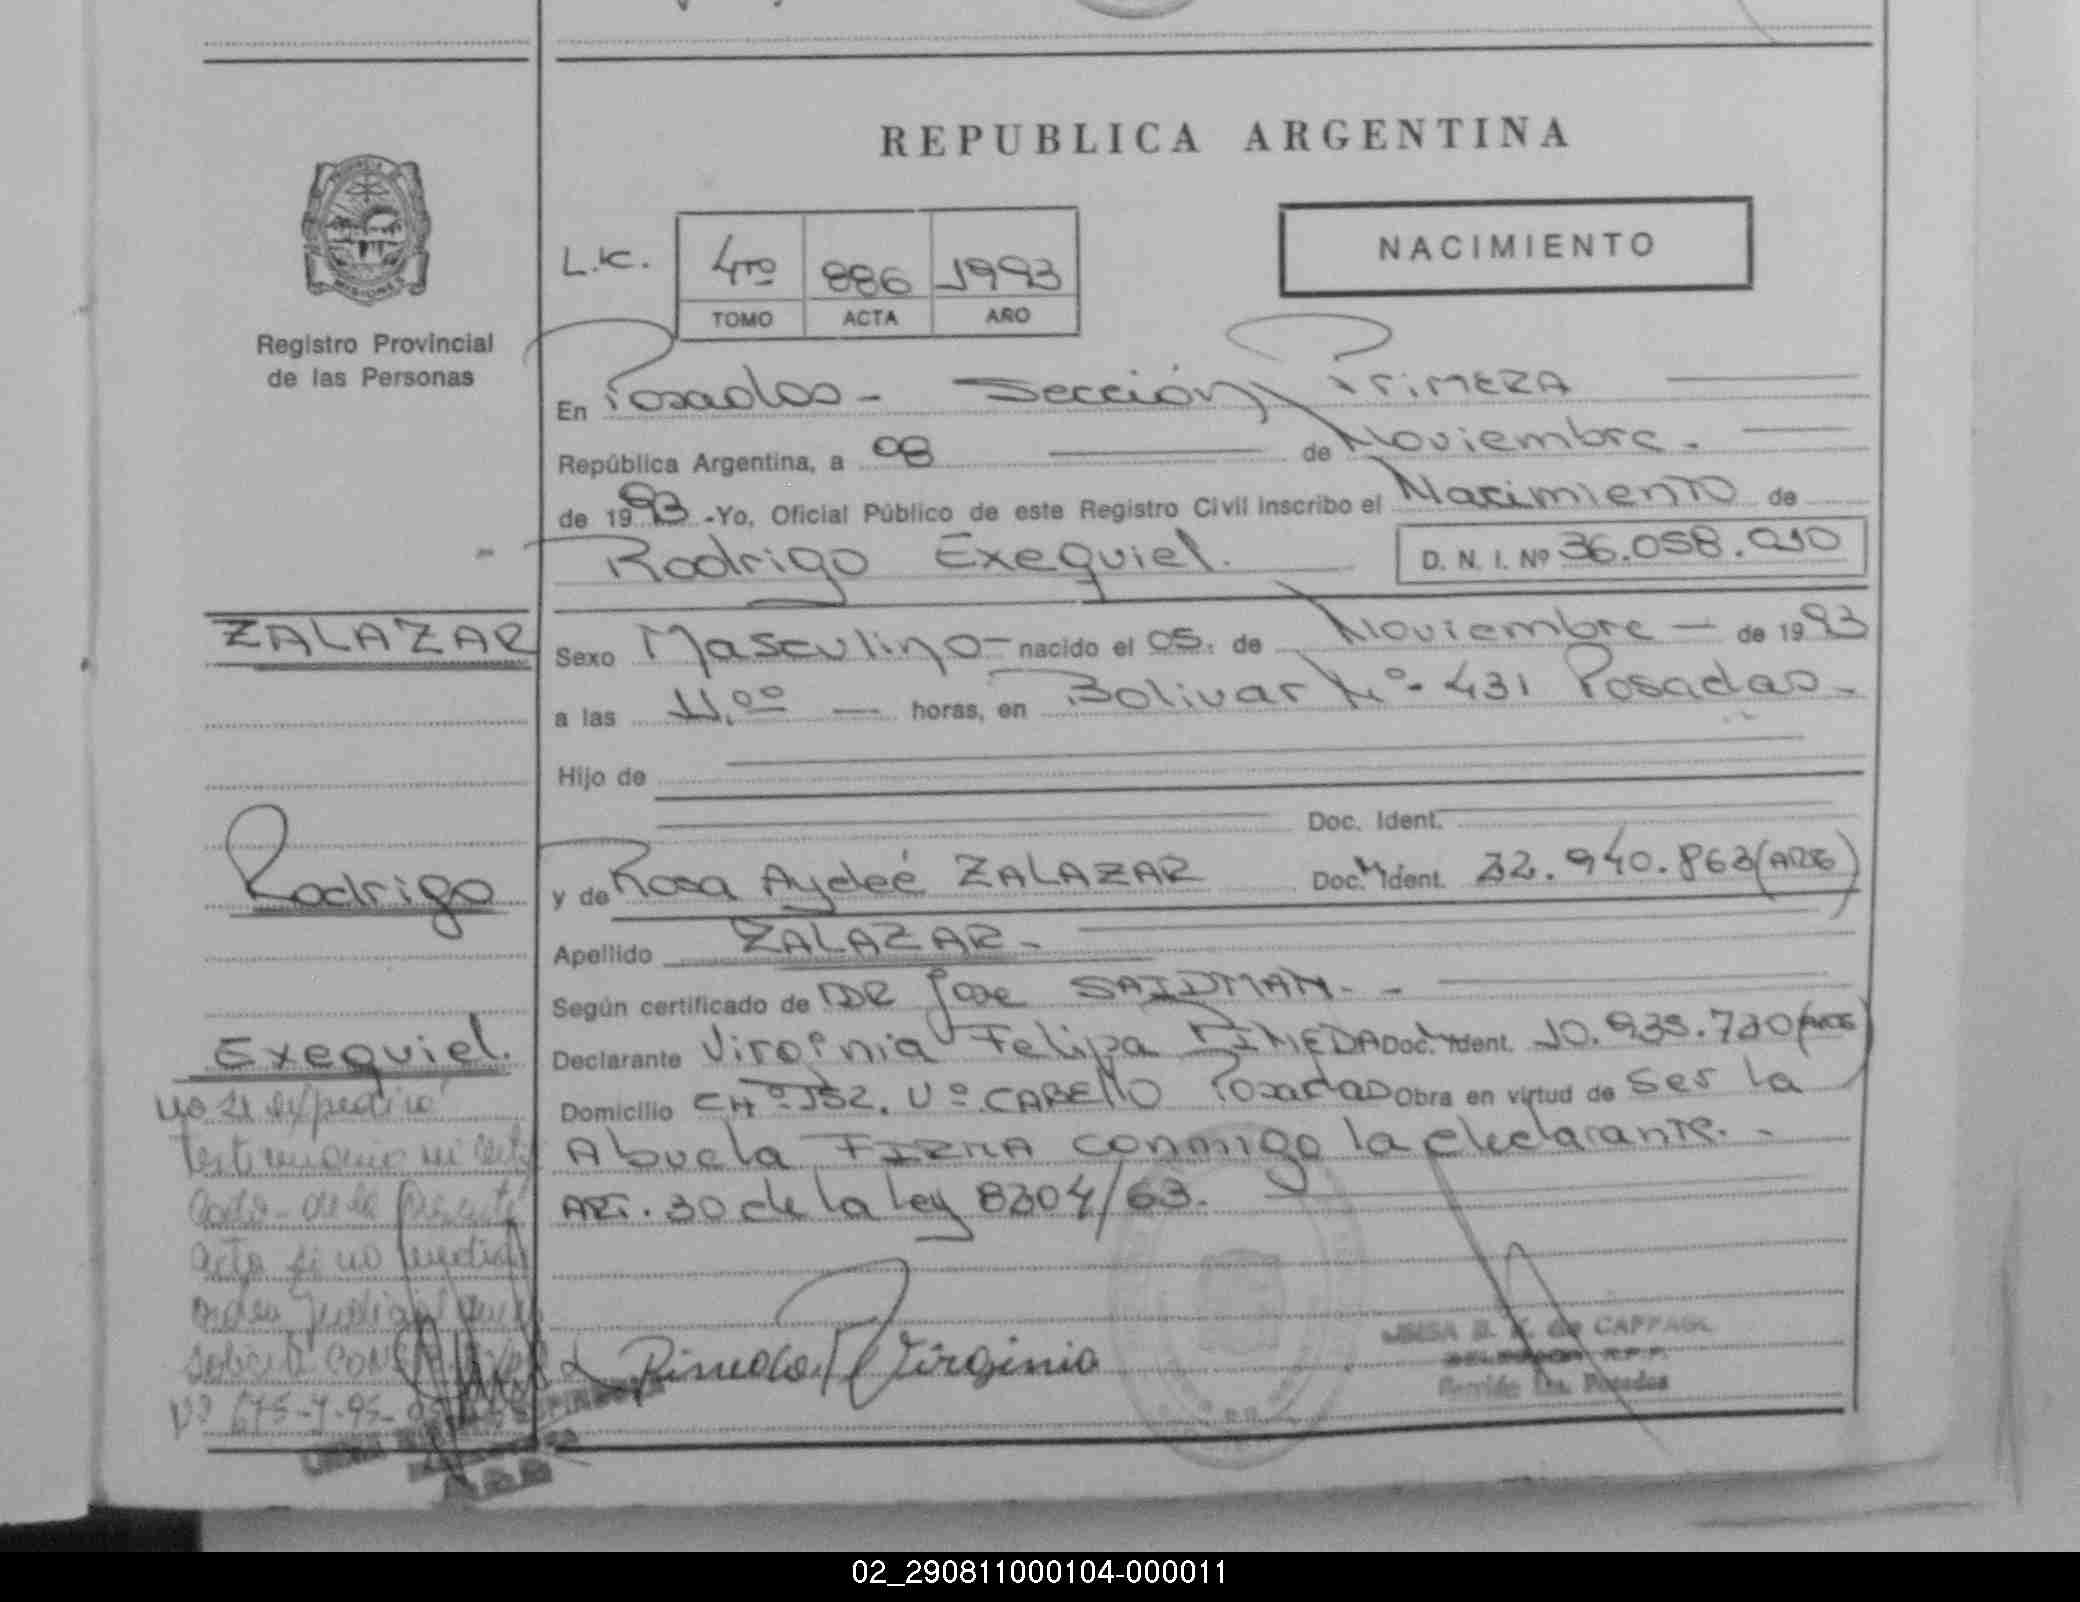 REPUBLICA ARGENTINA
PROVINCIA
MISIONES
Registro Provincial
de las Personas
L.C.
4to 886 1993
TOMO ACTA AÑO
NACIMIENTO
En Posadas - Sección Primera
República Argentina, a 08 de Noviembre.
de 1993 -Yo, Oficial Público de este Registro Civil inscribo el Nacimiento de
Rodrigo Exequiel. D. N. I. Nº 36.058.010
ZALAZAR
Rodrigo
Exequiel.
Sexo Masculino - nacido el 05. de Noviembre - de 1993
a las 11.oo — horas, en Bolivar Nº 431 Posadas.-
Hijo de
Doc. Ident.
y de Rosa Aydeé ZALAZAR Doc. Ident. 22.940.863 (ARG)
Apellido ZALAZAR -
Según certificado de DR Jose SAIDMAN. -
Declarante Virginia Felipa PINEDA Doc. Ident. 10.935.730
Domicilio CHº 152. Vº CABELLO Posadas Obra en virtud de Ser la
Abuela FIRMA conmigo la declarante. -
ART. 30 de la Ley 8204/63.
no se expedirá
testimonio ni
de la presente
acta si no
orden judicial
Pineda Virginia
de CAPPAGL
Posadas
02_290811000104-000011